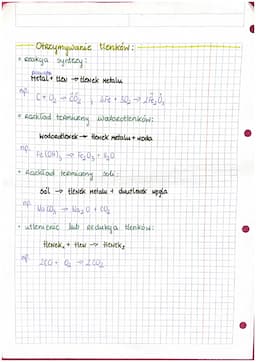 Otrzymywanie tlenków:
• reakcja syntezy:
metal + tlen → tlenek metalu
np. C + O₂ → CO₂ , 4Fe + 3O₂ → 2Fe₂O₃
• rozkład termiczny wodorotlenków:
wodorotlenek → tlenek metalu + woda
np. Fe(OH)₃ → Fe₂O₃ + H₂O
• rozkład termiczny soli:
sól → tlenek metalu + dwutlenek węgla
np. Na CO₃ → Na₂O + CO₂
• utlenienie lub redukcja tlenków:
tlenek₁ + tlen → tlenek₂
np. 2CO + O₂ → 2CO₂